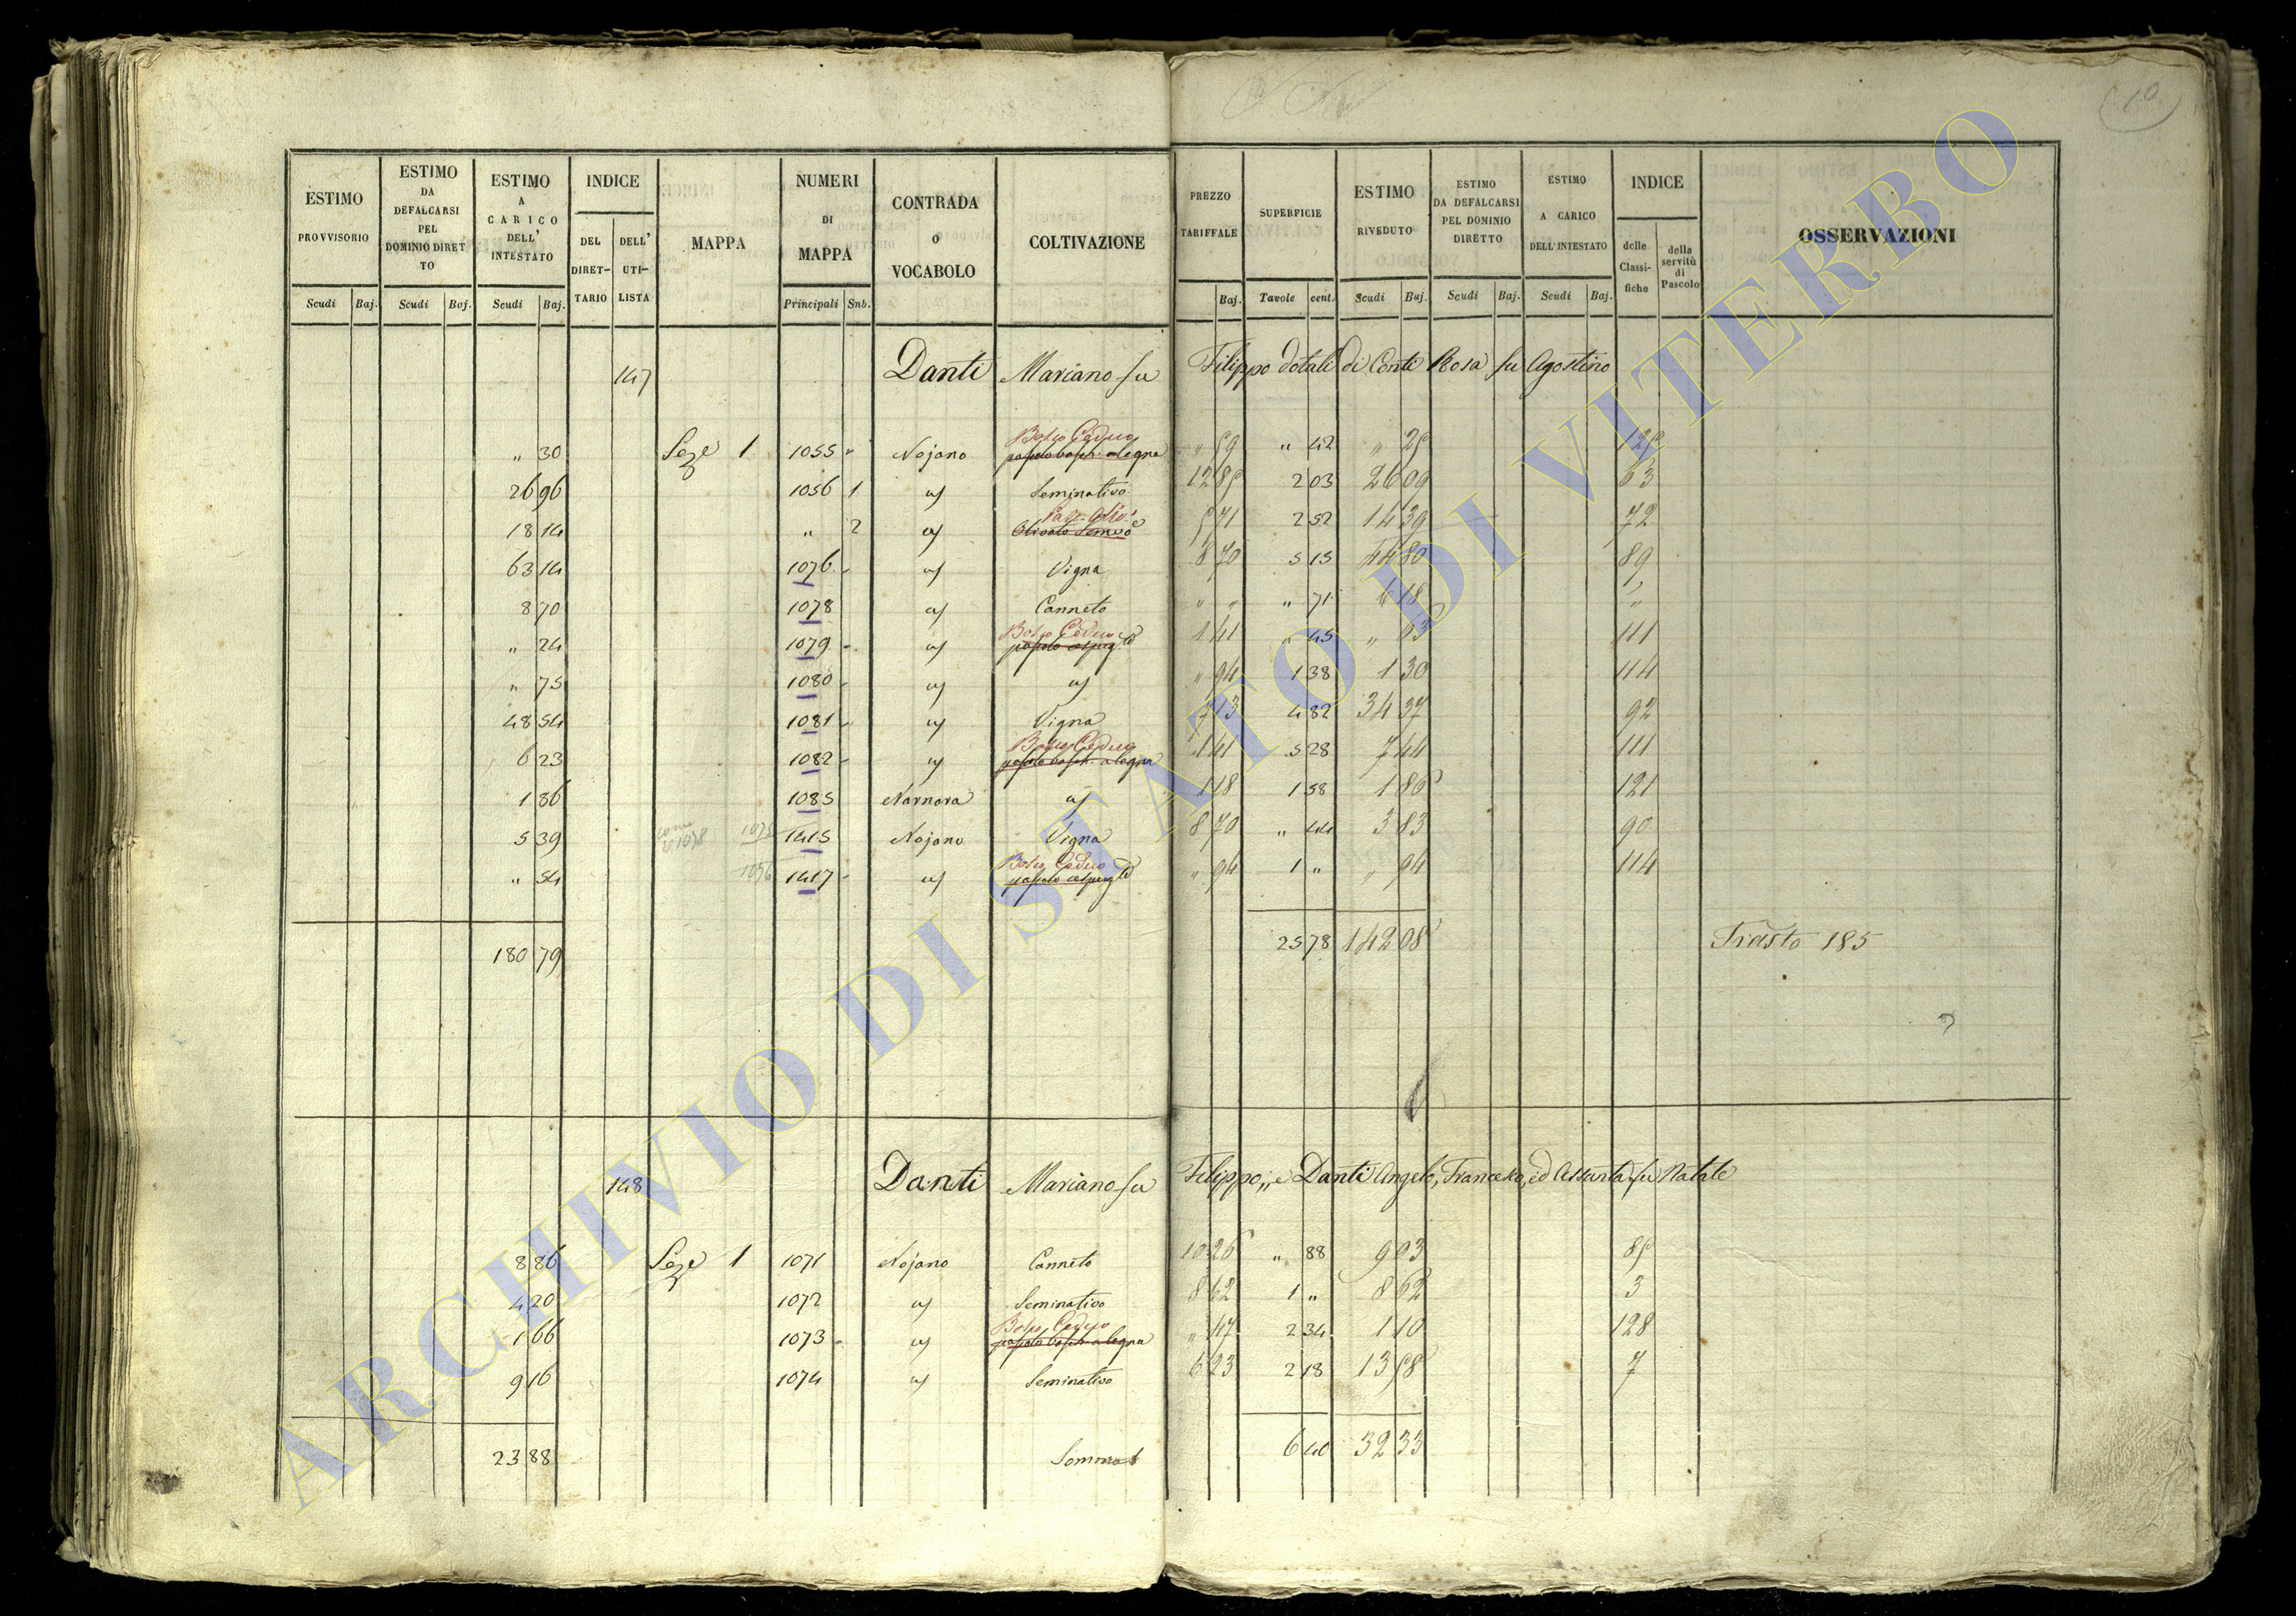 (10)
ESTIMO PROVVISORIO | ESTIMO DA DEFALCARSI PEL DOMINIO DIRET TO | ESTIMO A CARICO DELL' INTESTATO | INDICE | MAPPA | NUMERI DI MAPPA | CONTRADA O VOCABOLO | COLTIVAZIONE | PREZZO TARIFFALE | SUPERFICIE | ESTIMO RIVEDUTO | ESTIMO DA DEFALCARSI PEL DOMINIO DIRETTO | ESTIMO A CARICO DELL'INTESTATO | INDICE | OSSERVAZIONI
DEL DIRET-TARIO | DELL' UTI-LISTA | delle Classi-fiche | della servitù di Pascolo
Scudi | Baj. | Scudi | Baj. | Scudi | Baj. | Principali | Snb. | Baj. | Tavole | cent. | Scudi | Baj. | Scudi | Baj. | Scudi | Baj.
147 Danti Mariano fu Filippo dotali di Conti Rosa fu Agostino
Bosco Ceduo
" 30 Seze 1 1055 " Nojano " 59 " 42 " 25 125
26 96 1056 1 a/ Seminativo 12 85 2 03 26 09 63
18 14 " 2 a/ Olivato Semivo 5 71 2 52 14 39 72
63 14 1076 - a/ Vigna 8 70 5 15 44 80 89
8 70 1078 a/ Canneto " " " 71 6 18 "
Bosco Ceduo
" 24 1079 - a/ 1 41 " 45 " 63 111
" 75 1080 - a/ a/ " 94 1 38 1 30 114
48 54 1081 - a/ Vigna 7 13 4 82 34 37 92
Bosco Ceduo
6 23 1082 - a/ 1 41 5 28 7 44 111
1 86 1085 Narnara a/ 1 18 1 58 1 86 121
5 39 come 1078 1075 1415 Nojano Vigna 8 70 " 44 3 83 90
Bosco Ceduo
" 54 1076 1417 - a/ " 94 1 " " 94 114
180 79 25 78 142 08 Trasto 185
148 Danti Mariano fu Filippo, e Danti Angelo, Francesco, ed Assunta fu Natale
8 86 Seze 1 1071 Nojano Canneto 10 26 " 88 9 03 85
4 20 1072 a/ Seminativo 8 62 1 " 8 62 3
Bosco Ceduo
1 66 1073 - a/ " 47 2 34 1 10 128
9 16 1074 a/ Seminativo 6 23 2 18 13 58 7
23 88 Somma 6 40 32 33
ARCHIVIO DI STATO DI VITERBO